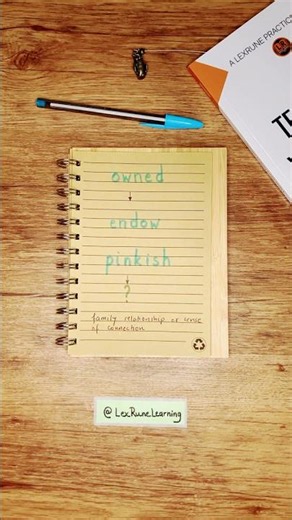 A LEXRUNE PRACTIC
owned
↓
endow
pinkish
↓
?
family relationship or sense
of connection
@LexRuneLearning